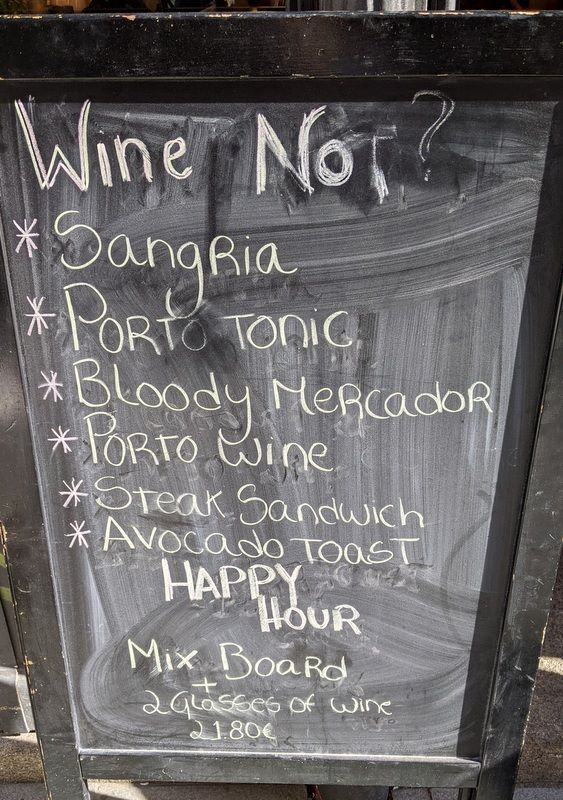 Wine Not?
* Sangria
* Porto Tonic
* Bloody Mercador
* Porto Wine
* Steak Sandwich
* Avocado Toast
Happy
Hour
Mix Board
+
2 Glasses of wine
21.80€